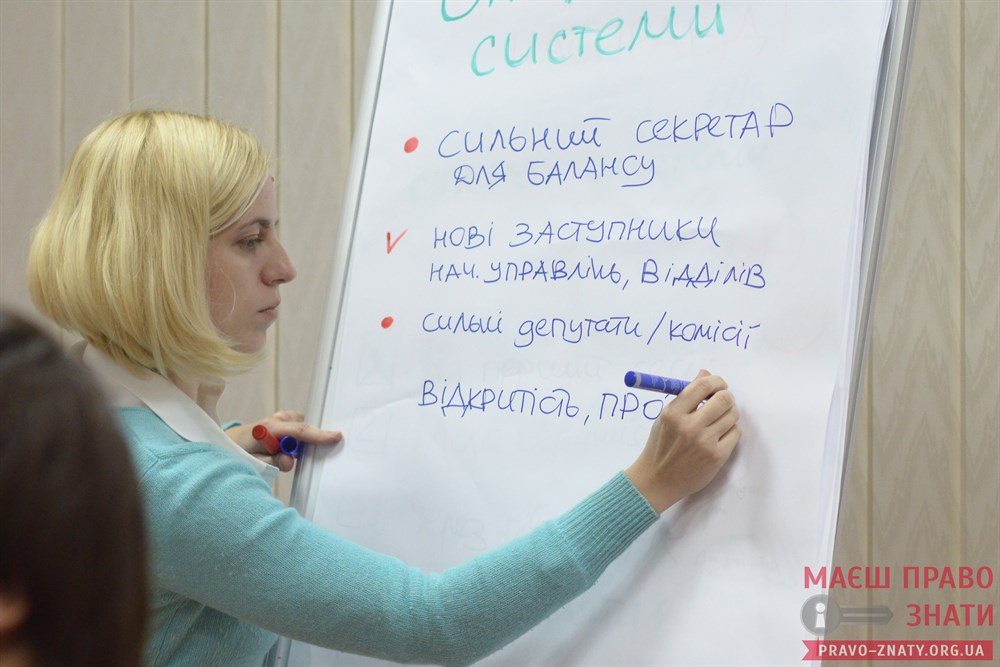 системи
• СИЛЬНИЙ СЕКРЕТАР
ДЛЯ БАЛАНСУ
✓ НОВІ ЗАСТУПНИКИ
НАЧ. УПРАВЛІНЬ, ВІДДІЛІВ
• СИЛЬНІ депутати/комісії
ВІДКРИТІСТЬ, ПРО
МАЄШ ПРАВО
ЗНАТИ
PRAVO-ZNATY.ORG.UA